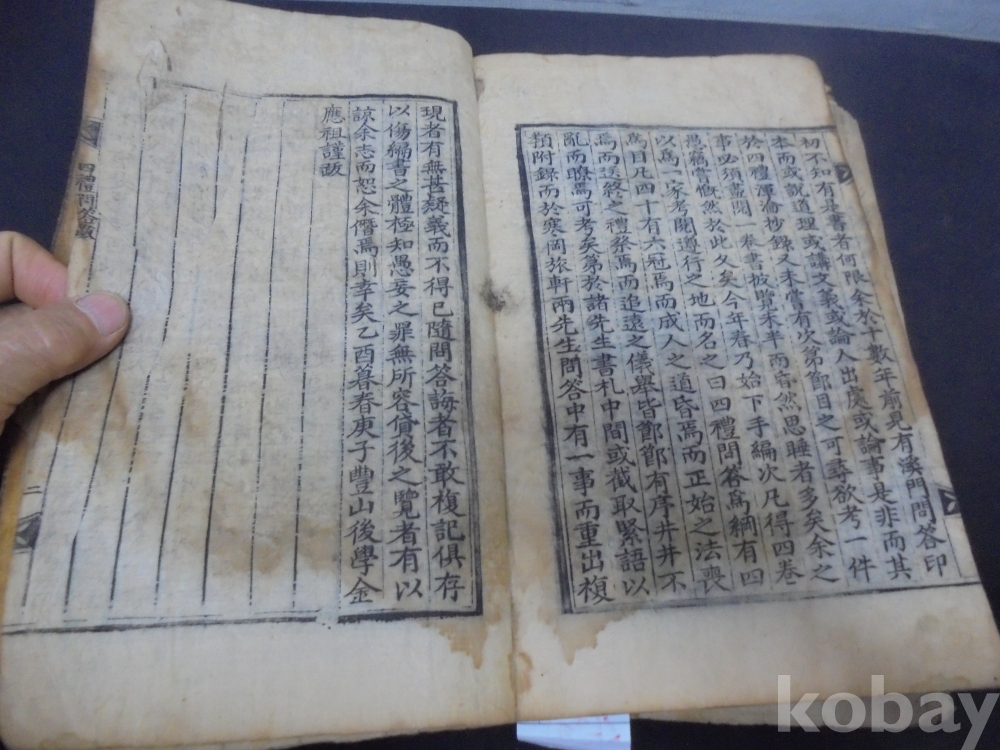 初不知有是書者何限余於十數年前見有溪門問答印
本而或說道理或講文義或論人出處或論事是非而其
於四禮渾淪抄錄又未嘗有次第節目之可尋欲考一件
事必須盡閱一卷書披覽未半而窅然思睡者多矣余之
愚竊嘗慨然於此久矣今年春乃始下手編次凡得四卷
以爲一家考閱遵行之地而名之曰四禮問答爲綱有四
爲目凡四十有六冠焉而成人之道昏焉而正始之法喪
焉而送終之禮祭焉而追遠之儀擧皆鄭鄭有序井井不
亂而瞭焉可考矣第於諸先生書札中間或截取緊語以
類附錄而於寒岡旅軒兩先生問答中有一事而重出複
現者有無甚疑義而不得已隨問答誨者不敢複記俱存
以傷編書之體極知愚妄之罪無所容貸後之覽者有以
諒余志而恕余僭焉則幸矣乙酉暮春庚子豐山後學金
應祖謹跋
四禮問答跋
二
kobay